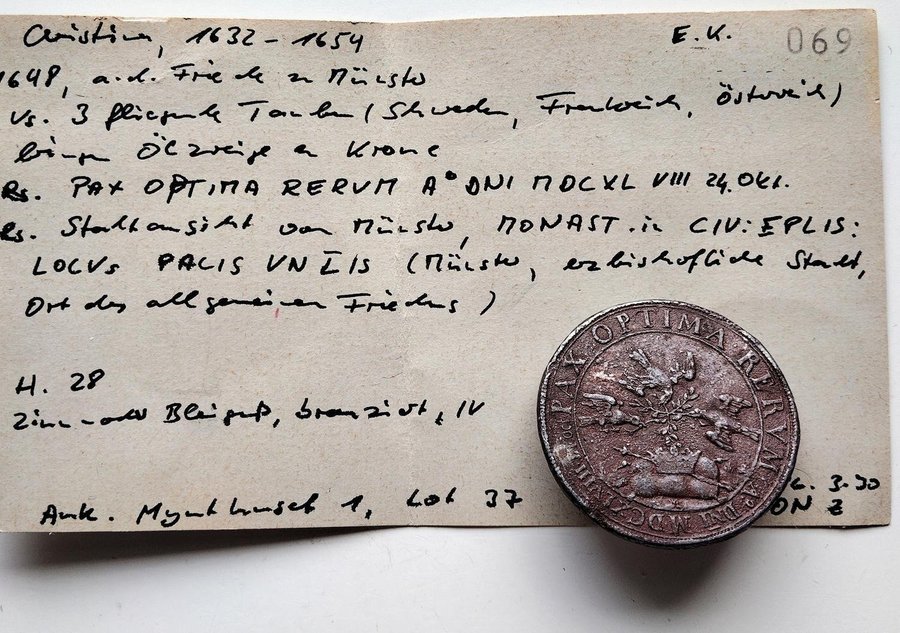 Christina, 1632 - 1654 E.K. 069
1648, a.d. Friede zu Münster
Vs. 3 fliegende Tauben (Schweden, Frankreich, Österreich)
bringen Ölzweige an Krone
Rs. PAX OPTIMA RERVM A° DNI MDCXL VIII 24. Okt.
Rs. Stadtansicht von Münster, MONAST. in CIV: EPLIS:
LOCVS PACIS VNIIS (Münster, erzbischofliche Stadt,
Ort des allgemeinen Friedens)
H. 28
Zinn- oder Bleiguß, bronziert, IV
Auk. Myntkuset 1, Lot 37
3.30
ON Z
PAX OPTIMA RERVM A° DNI MDCXLVIII